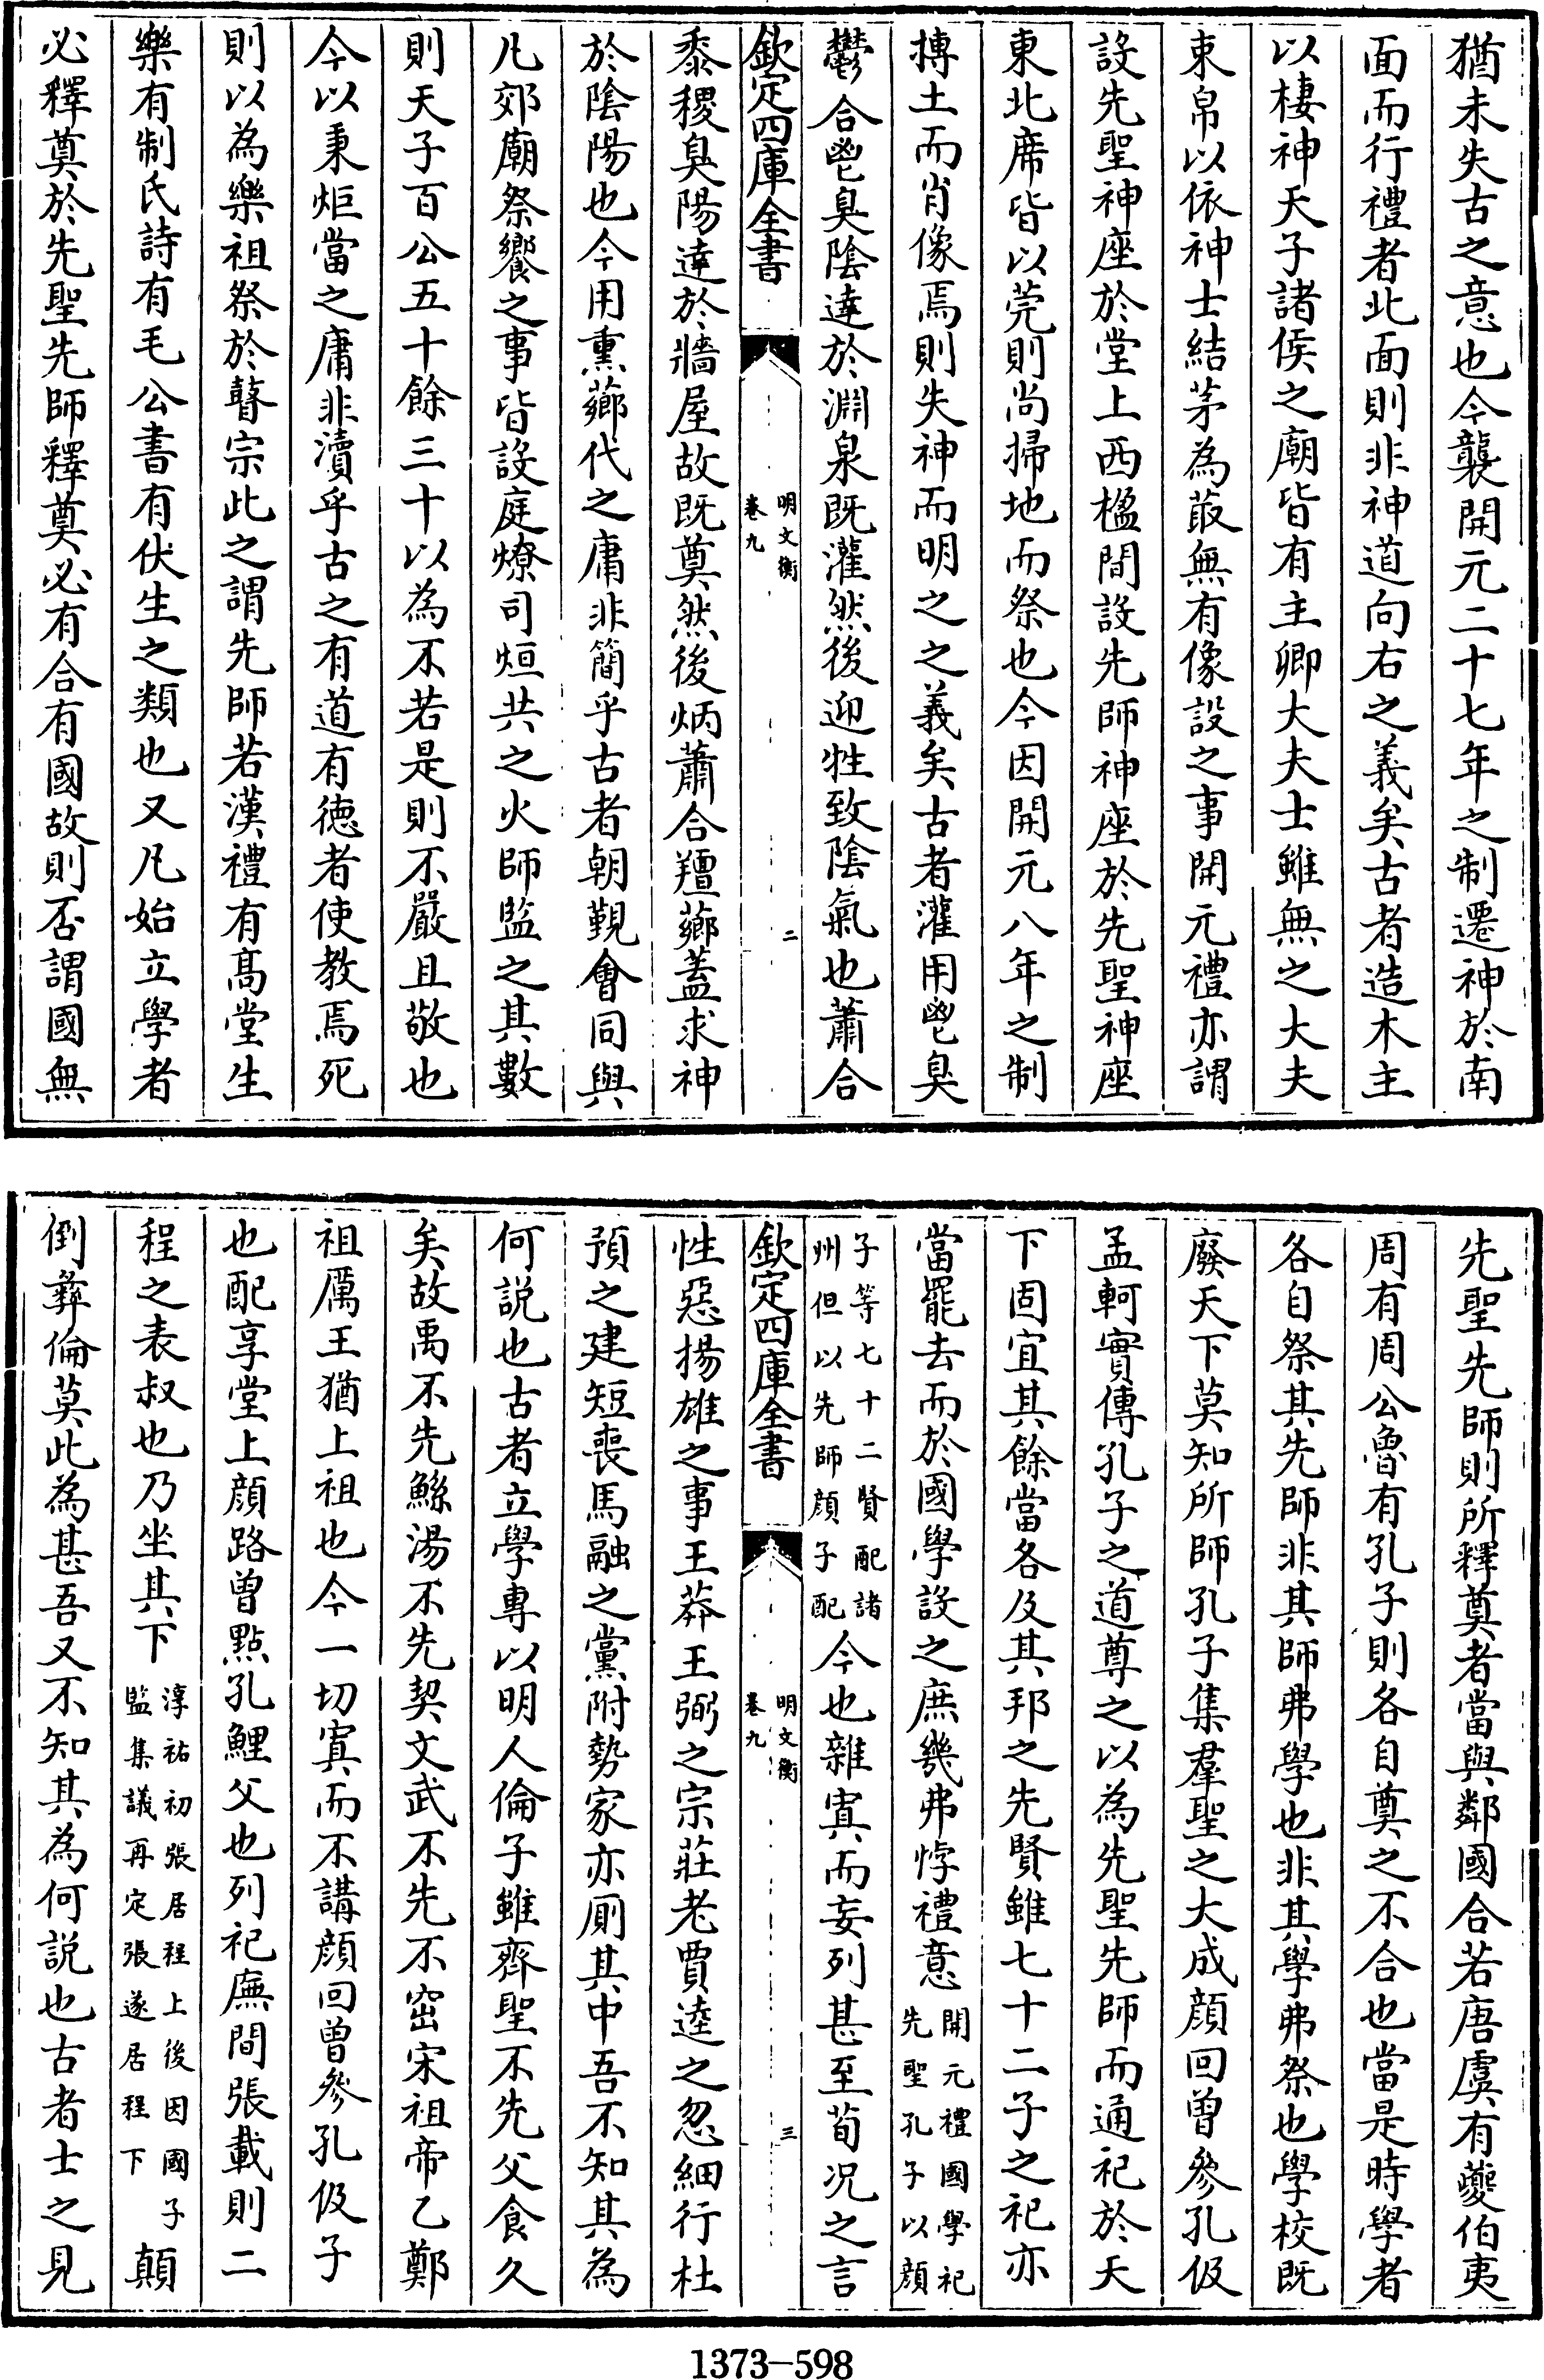 猶未失古之意也今襲開元二十七年之制遷神於南
面而行禮者北面則非神道向右之義矣古者造木主
以棲神天子諸侯之廟皆有主卿大夫士雖無之大夫
束帛以依神士結茅為菆無有像設之事開元禮亦謂
設先聖神座於堂上西楹間設先師神座於先聖神座
東北席皆以莞則尚掃地而祭也今因開元八年之制
摶土而肖像焉則失神而明之之義矣古者灌用鬯臭
鬱合鬯臭陰達於淵泉既灌然後迎牲致陰氣也蕭合
欽定四庫全書
明文衡
卷九
二
黍稷臭陽達於牆屋故既奠然後焫蕭合羶薌蓋求神
於陰陽也今用熏薌代之庸非簡乎古者朝覲會同與
凡郊廟祭饗之事皆設庭燎司烜共之火師監之其數
則天子百公五十餘三十以為不若是則不嚴且敬也
今以秉炬當之庸非瀆乎古之有道有德者使教焉死
則以為樂祖祭於瞽宗此之謂先師若漢禮有髙堂生
樂有制氏詩有毛公書有伏生之類也又凡始立學者
必釋奠於先聖先師釋奠必有合有國故則否謂國無
先聖先師則所釋奠者當與鄰國合若唐虞有夔伯夷
周有周公魯有孔子則各自奠之不合也當是時學者
各自祭其先師非其師弗學也非其學弗祭也學校既
廢天下莫知所師孔子集羣聖之大成顔回曾參孔伋
孟軻實傳孔子之道尊之以為先聖先師而通祀於天
下固宜其餘當各及其邦之先賢雖七十二子之祀亦
當罷去而於國學設之庶幾弗悖禮意開元禮國學祀先聖孔子以顔
子等七十二賢配諸州但以先師顔子配今也雜寘而妄列甚至荀况之言
欽定四庫全書
明文衡
卷九
三
性惡揚雄之事王莽王弼之宗莊老賈逵之忽細行杜
預之建短喪馬融之黨附勢家亦厠其中吾不知其為
何説也古者立學專以明人倫子雖齊聖不先父食久
矣故禹不先鯀湯不先契文武不先不窋宋祖帝乙鄭
祖厲王猶上祖也今一切寘而不講顔回曾參孔伋子
也配享堂上顔路曾㸃孔鯉父也列祀廡間張載則二
程之表叔也乃坐其下淳祐初張居程上後因國子監集議再定張遂居程下顛
倒彝倫莫此為甚吾又不知其為何説也古者士之見
1373—598